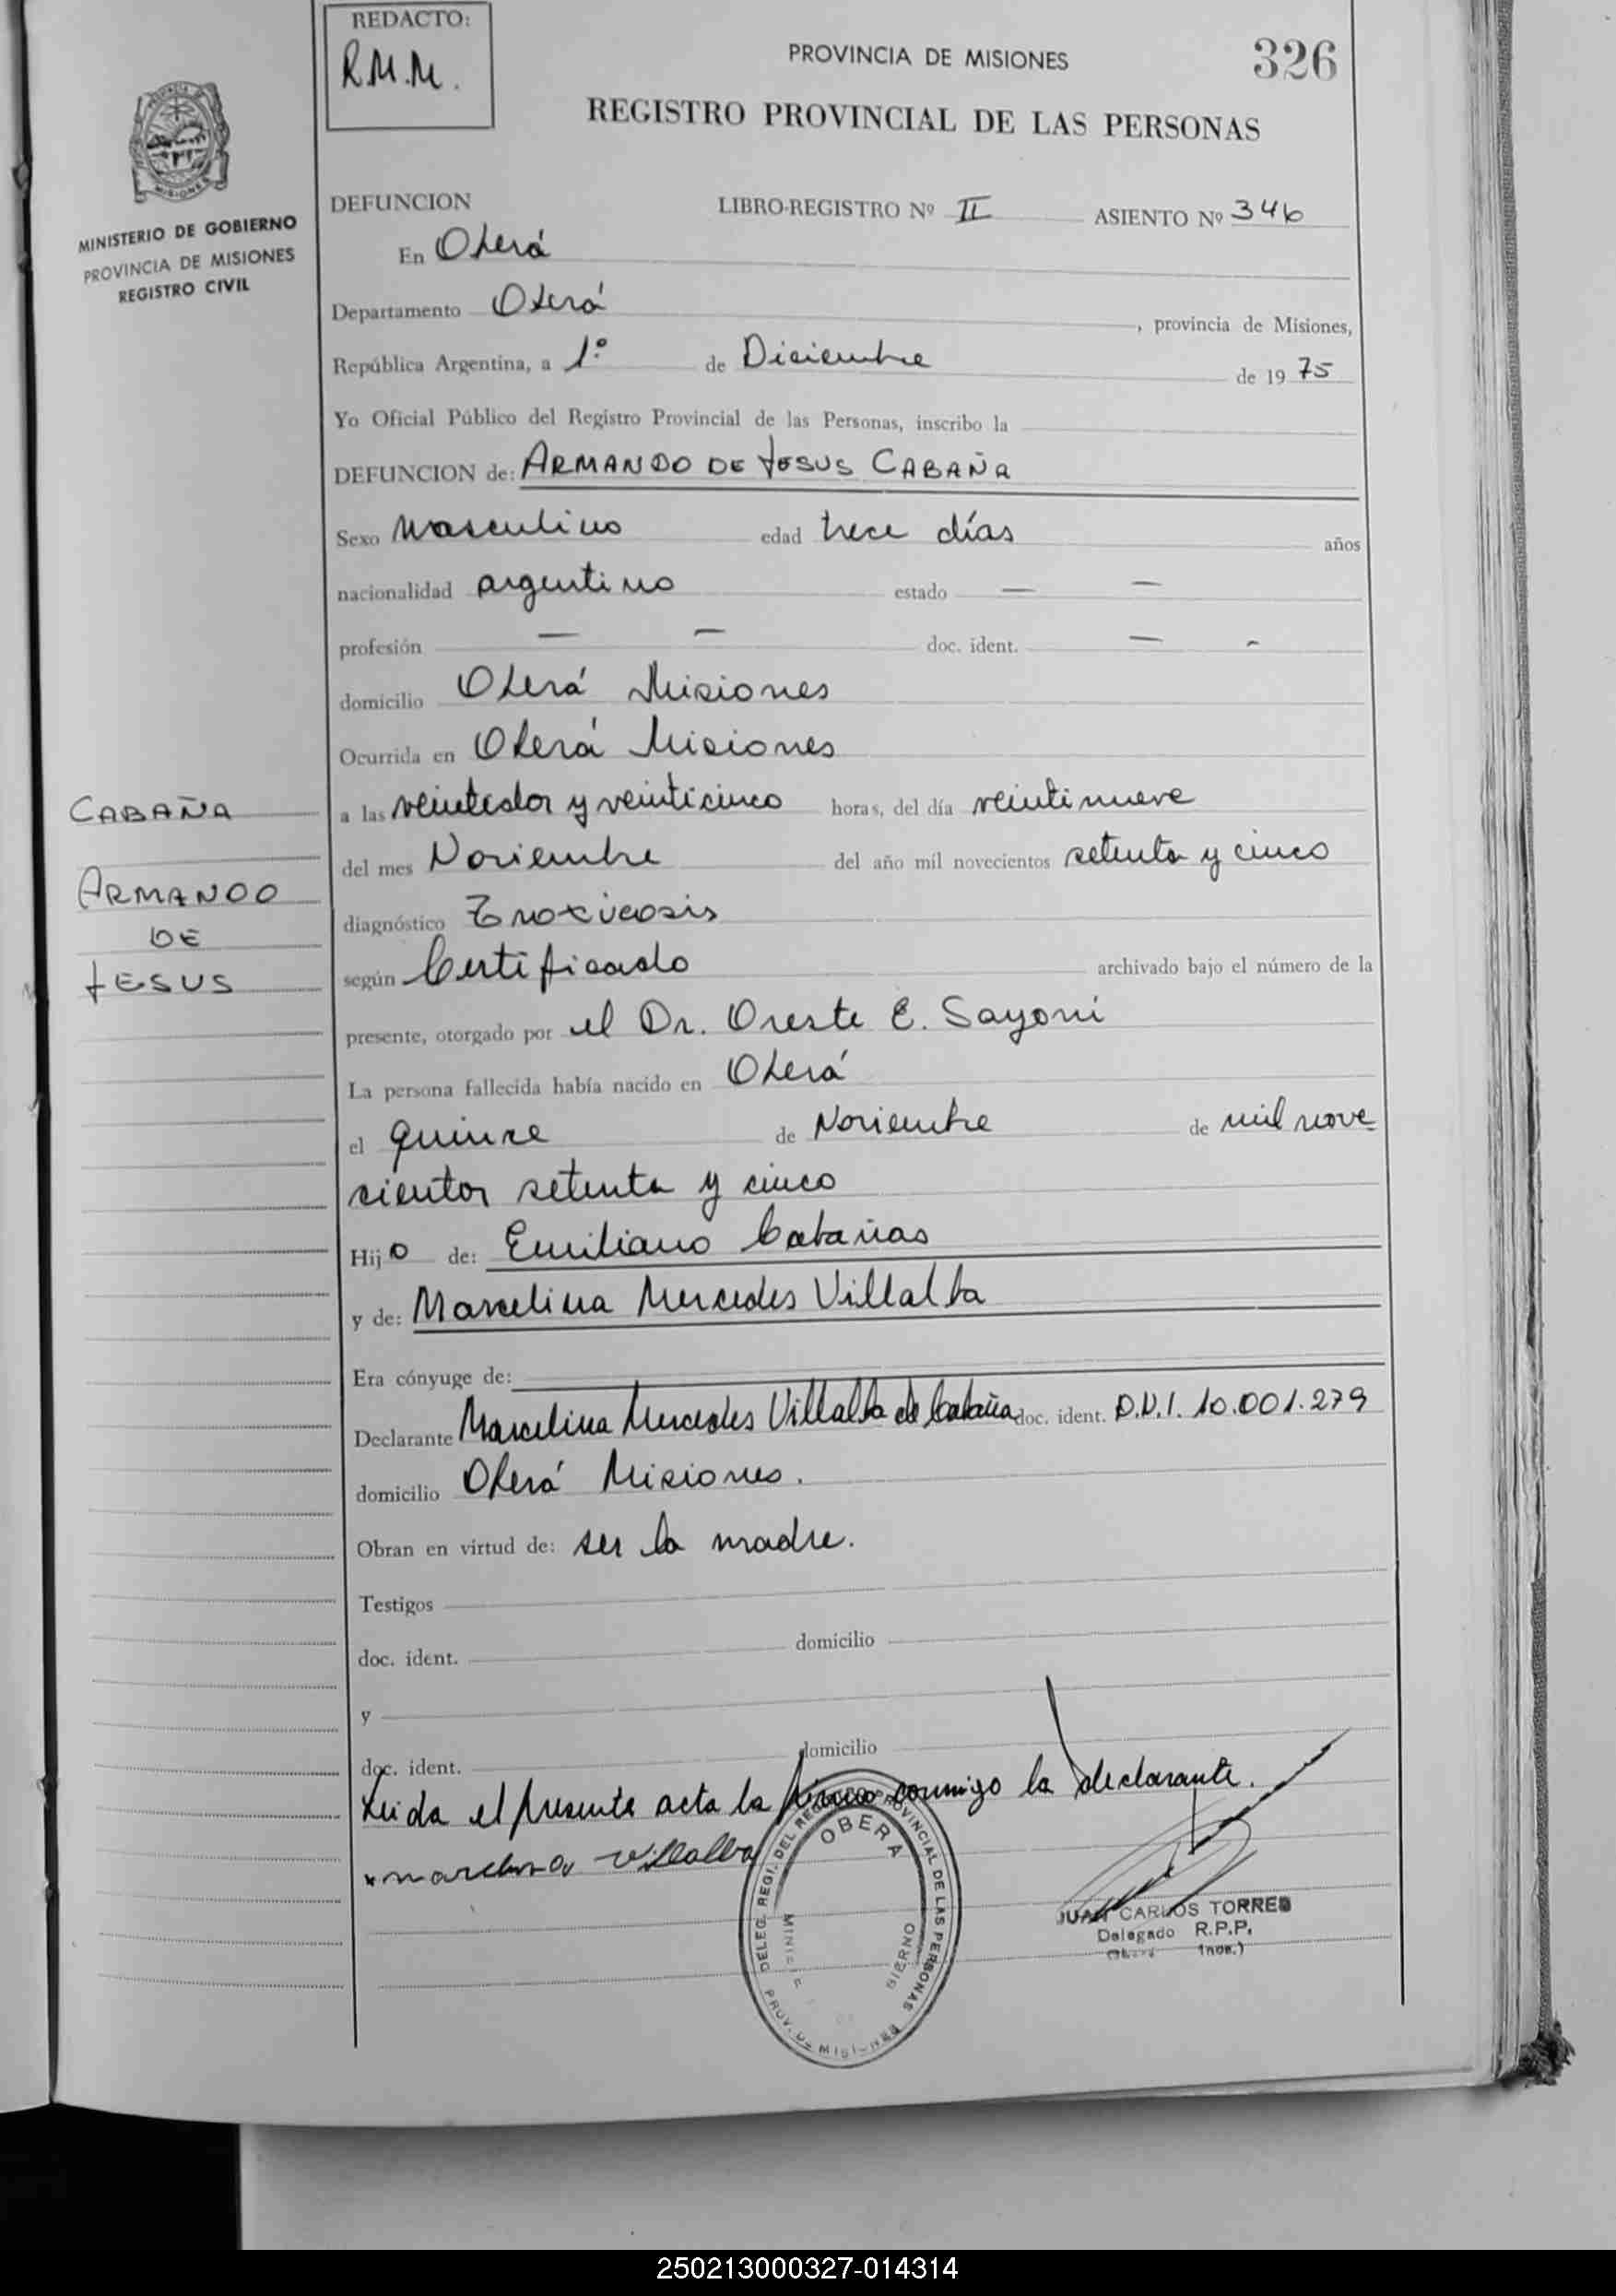 REDACTO:
R.M.M.
PROVINCIA DE MISIONES
326
REGISTRO PROVINCIAL DE LAS PERSONAS
MISIONES
MINISTERIO DE GOBIERNO
PROVINCIA DE MISIONES
REGISTRO CIVIL
DEFUNCION LIBRO-REGISTRO Nº II ASIENTO Nº 346
En Oberá
Departamento Oberá, provincia de Misiones,
República Argentina, a 1º de Diciembre de 1975
Yo Oficial Público del Registro Provincial de las Personas, inscribo la
DEFUNCION de: ARMANDO DE JESUS CABAÑA
Sexo Masculino edad trece días años
nacionalidad argentino estado — —
profesión — — doc. ident. — -
domicilio Oberá Misiones
Ocurrida en Oberá Misiones
CABAÑA
ARMANDO
DE
JESUS
a las veintidos y veinticinco horas, del día veintinueve
del mes Noviembre del año mil novecientos setenta y cinco
diagnóstico
según Certificado archivado bajo el número de la
presente, otorgado por el Dr. Oreste E. Sayoni
La persona fallecida había nacido en Oberá
el quince de Noviembre de mil nove
cientos setenta y cinco
Hijo de: Emiliano Cabañas
y de: Marcelina Mercedes Villalba
Era cónyuge de:
Declarante Marcelina Mercedes Villalba de Cabaña doc. ident. D.N.I. 10.001.279
domicilio Oberá Misiones.
Obran en virtud de: ser la madre.
Testigos
doc. ident. domicilio
y
doc. ident. domicilio
Leida el presente acta la firma conmigo la declarante.
marcelina villalba
DELEG. REGI. DEL REGISTRO PROVINCIAL DE LAS PERSONAS
OBERA
PROV. DE MISIONES
JUAN CARLOS TORRES
Delegado R.P.P.
250213000327-014314